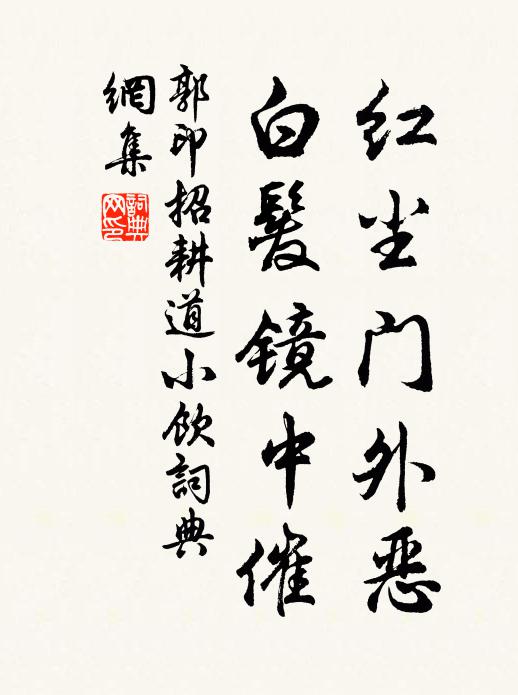 红尘门外恶
白髮镜中催
郭印招耕道小饮詞典
網集
詞典
网印